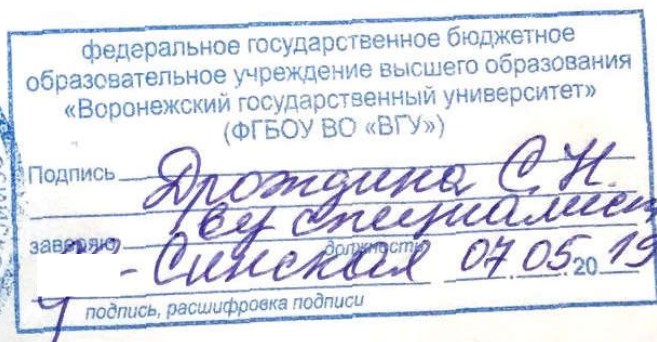 федеральное государственное бюджетное
образовательное учреждение высшего образования
«Воронежский государственный университет»
(ФГБОУ ВО «ВГУ»)
Подпись Дрождина С.Н.
специалист
заверяю
должность
Синская 07.05.2019
подпись, расшифровка подписи